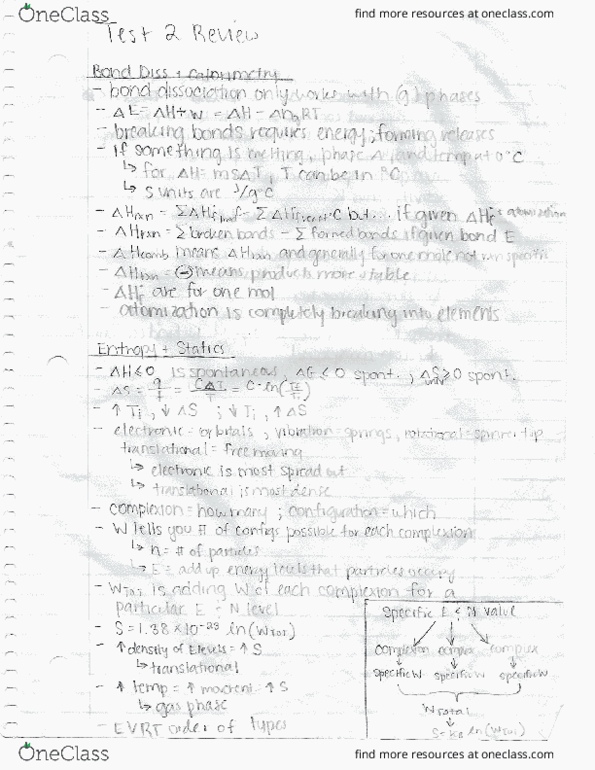 OneClass
find more resources at oneclass.com
Test 2 Review
Bond Diss + Calorimetry
- bond dissociation only works with (g) phases
- ΔE = ΔH + W = ΔH - ΔngRT
- breaking bonds requires energy; forming releases
- If something is melting, phase Δ and temp at 0°C
↳ for ΔH = msΔT, T can be in °C
↳ s units are J/g°C
- ΔHrxn = ΣΔHf prod - ΣΔHf but... if given ΔHf atomization
- ΔHrxn = Σbroken bonds - Σformed bonds if given bond E
- ΔHcomb means ΔHrxn and generally for one mole not rxn specific
- ΔHrxn = (-) means products more stable
- ΔHf are for one mol
- atomization is completely breaking into elements
Entropy + Statics
- ΔH ≤ 0 is spontaneous, ΔG < 0 spont. ; ΔSuniv ≥ 0 spont.
- ΔS = q/T = CΔT/T = C·ln(Tf/Ti)
- ↑ Ti, ↓ ΔS ; ↓ Ti, ↑ ΔS
- electronic = orbitals ; vibration = springs, rotational = spinner top
translational = free moving
↳ electronic is most spread out
↳ translational is most dense
- complexion = how many ; configuration = which
- W tells you # of configs possible for each complexion
↳ n = # of particles
↳ E = add up energy levels that particles occupy
- WTOT is adding W of each complexion for a
particular E + N level
- S = 1.38 × 10-23 ln(WTOT)
- ↑ density of E levels = ↑ S
↳ translational
- ↑ temp = ↑ movement ↑ S
↳ gas phase
- EVRT order of types
Specific E & N value
complexion complex complex
specific W specific W specific W
WTOTAL
S = KB ln(WTOT)
OneClass
find more resources at oneclass.com